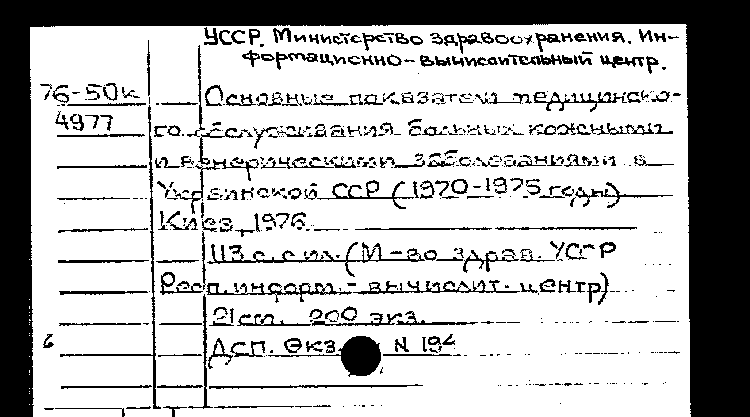 УССР. Министерство здравоохранения. Ин-
формационно-вычислительный центр.
76-50к Основные показатели медицинско-
4977 го обслуживания больных кожными
и венерическими заболеваниями в
Украинской ССР (1970-1975 годы)
Киев, 1976
113 с. с ил. (М-во здрав. УССР
Респ. информ.-вычислит. центр)
21 см. 200 экз.
6 ДСП. Экз. N 194